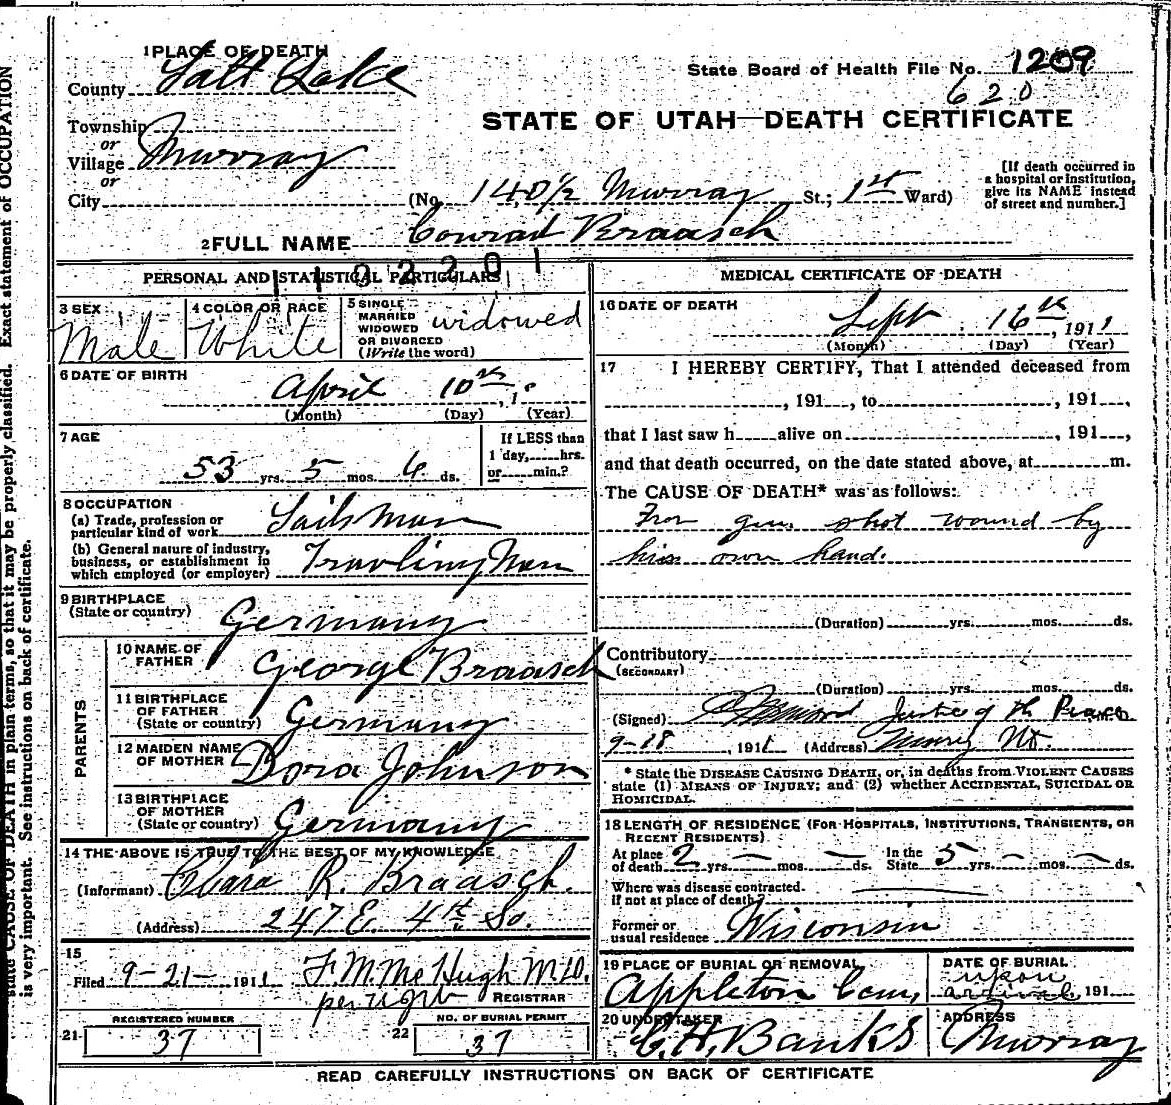 1 PLACE OF DEATH
County Salt Lake
State Board of Health File No. 1209
620
Township
or
Village Murray
or
City
STATE OF UTAH—DEATH CERTIFICATE
(No. 140½ Murray St.; 1st Ward)
[If death occurred in
a hospital or institution,
give its NAME instead
of street and number.]
2 FULL NAME Conrad Braasch
PERSONAL AND STATISTICAL PARTICULARS
3 SEX
Male
4 COLOR OR RACE
White
5 SINGLE
MARRIED
WIDOWED
OR DIVORCED
(Write the word)
widowed
6 DATE OF BIRTH
April 10th, 1
(Month) (Day) (Year)
7 AGE
53 yrs. 5 mos. 6 ds.
If LESS than
1 day, hrs.
or min.?
8 OCCUPATION
(a) Trade, profession or
particular kind of work Sailsman
(b) General nature of industry,
business, or establishment in
which employed (or employer) Travling Man
9 BIRTHPLACE
(State or country) Germany
PARENTS
10 NAME OF
FATHER George Braasch
11 BIRTHPLACE
OF FATHER
(State or country) Germany
12 MAIDEN NAME
OF MOTHER Dora Johnson
13 BIRTHPLACE
OF MOTHER
(State or country) Germany
14 THE ABOVE IS TRUE TO THE BEST OF MY KNOWLEDGE
(Informant) R. Braasch.
(Address) 247 E. 4th So.
15
Filed 9-21- 1911 F. M. McHugh M.D.
per REGISTRAR
REGISTERED NUMBER
21 37
NO. OF BURIAL PERMIT
22 37
MEDICAL CERTIFICATE OF DEATH
16 DATE OF DEATH
Sept 16th, 1911
(Month) (Day) (Year)
17 I HEREBY CERTIFY, That I attended deceased from
, 191 , to , 191 ,
that I last saw h alive on , 191 ,
and that death occurred, on the date stated above, at m.
The CAUSE OF DEATH* was as follows:
gun shot wound by
his own hand.
(Duration) yrs. mos. ds.
Contributory
(SECONDARY)
(Duration) yrs. mos. ds.
(Signed) Justice of th Peace
9-18, 1911 (Address) Murry Ut.
* State the DISEASE CAUSING DEATH, or, in deaths from VIOLENT CAUSES
state (1) MEANS OF INJURY; and (2) whether ACCIDENTAL, SUICIDAL OR
HOMICIDAL.
18 LENGTH OF RESIDENCE (FOR HOSPITALS, INSTITUTIONS, TRANSIENTS, OR
RECENT RESIDENTS)
At place
of death 2 yrs. — mos. — ds. In the
State 5 yrs. — mos. — ds.
Where was disease contracted.
if not at place of death?
Former or
usual residence Wisconsin
19 PLACE OF BURIAL OR REMOVAL
Appleton Cem,
DATE OF BURIAL
upon
arrival, 191
20 UNDERTAKER
C. H. Banks
ADDRESS
Murray
READ CAREFULLY INSTRUCTIONS ON BACK OF CERTIFICATE
state CAUSE OF DEATH in plain terms, so that it may be properly classified. Exact statement of OCCUPATION
is very important. See instructions on back of certificate.